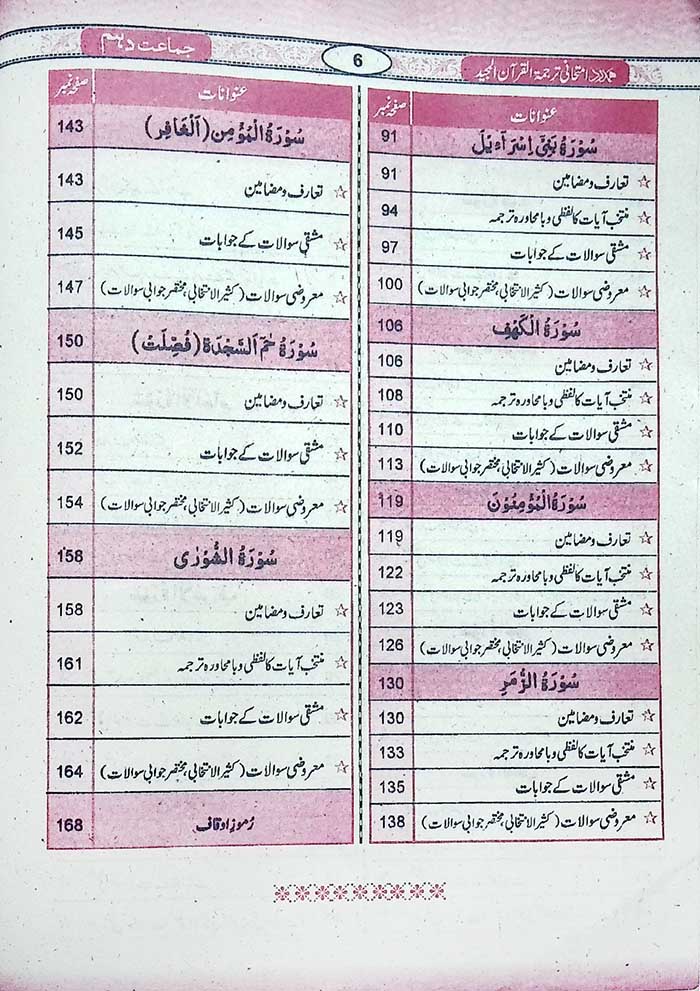 ہمدرد امتحانی ترجمۃ القرآن المجید
6
جماعت دہم
عنوانات صفحہ نمبر
سُوْرَۃُ بَنِیْٓ اِسْرَآءِیْلَ 91
☆ تعارف و مضامین 91
☆ منتخب آیات کا لفظی و با محاورہ ترجمہ 94
☆ مشقی سوالات کے جوابات 97
☆ معروضی سوالات (کثیر الانتخابی، مختصر جوابی سوالات) 100
سُوْرَۃُ الْکَہْفِ 106
☆ تعارف و مضامین 106
☆ منتخب آیات کا لفظی و با محاورہ ترجمہ 108
☆ مشقی سوالات کے جوابات 110
☆ معروضی سوالات (کثیر الانتخابی، مختصر جوابی سوالات) 113
سُوْرَۃُ الْمُؤْمِنُوْنَ 119
☆ تعارف و مضامین 119
☆ منتخب آیات کا لفظی و با محاورہ ترجمہ 122
☆ مشقی سوالات کے جوابات 123
☆ معروضی سوالات (کثیر الانتخابی، مختصر جوابی سوالات) 126
سُوْرَۃُ الزُّمَرِ 130
☆ تعارف و مضامین 130
☆ منتخب آیات کا لفظی و با محاورہ ترجمہ 133
☆ مشقی سوالات کے جوابات 135
☆ معروضی سوالات (کثیر الانتخابی، مختصر جوابی سوالات) 138
عنوانات صفحہ نمبر
سُوْرَۃُ الْمُؤْمِن (اَلْغَافِر) 143
☆ تعارف و مضامین 143
☆ مشقی سوالات کے جوابات 145
☆ معروضی سوالات (کثیر الانتخابی، مختصر جوابی سوالات) 147
سُوْرَۃُ حٰمٓ اَلسَّجْدَۃ (فُصِّلَتْ) 150
☆ تعارف و مضامین 150
☆ مشقی سوالات کے جوابات 152
☆ معروضی سوالات (کثیر الانتخابی، مختصر جوابی سوالات) 154
سُوْرَۃُ الشُّوْرٰی 158
☆ تعارف و مضامین 158
☆ منتخب آیات کا لفظی و با محاورہ ترجمہ 161
☆ مشقی سوالات کے جوابات 162
☆ معروضی سوالات (کثیر الانتخابی، مختصر جوابی سوالات) 164
رُموزِ اوقاف 168